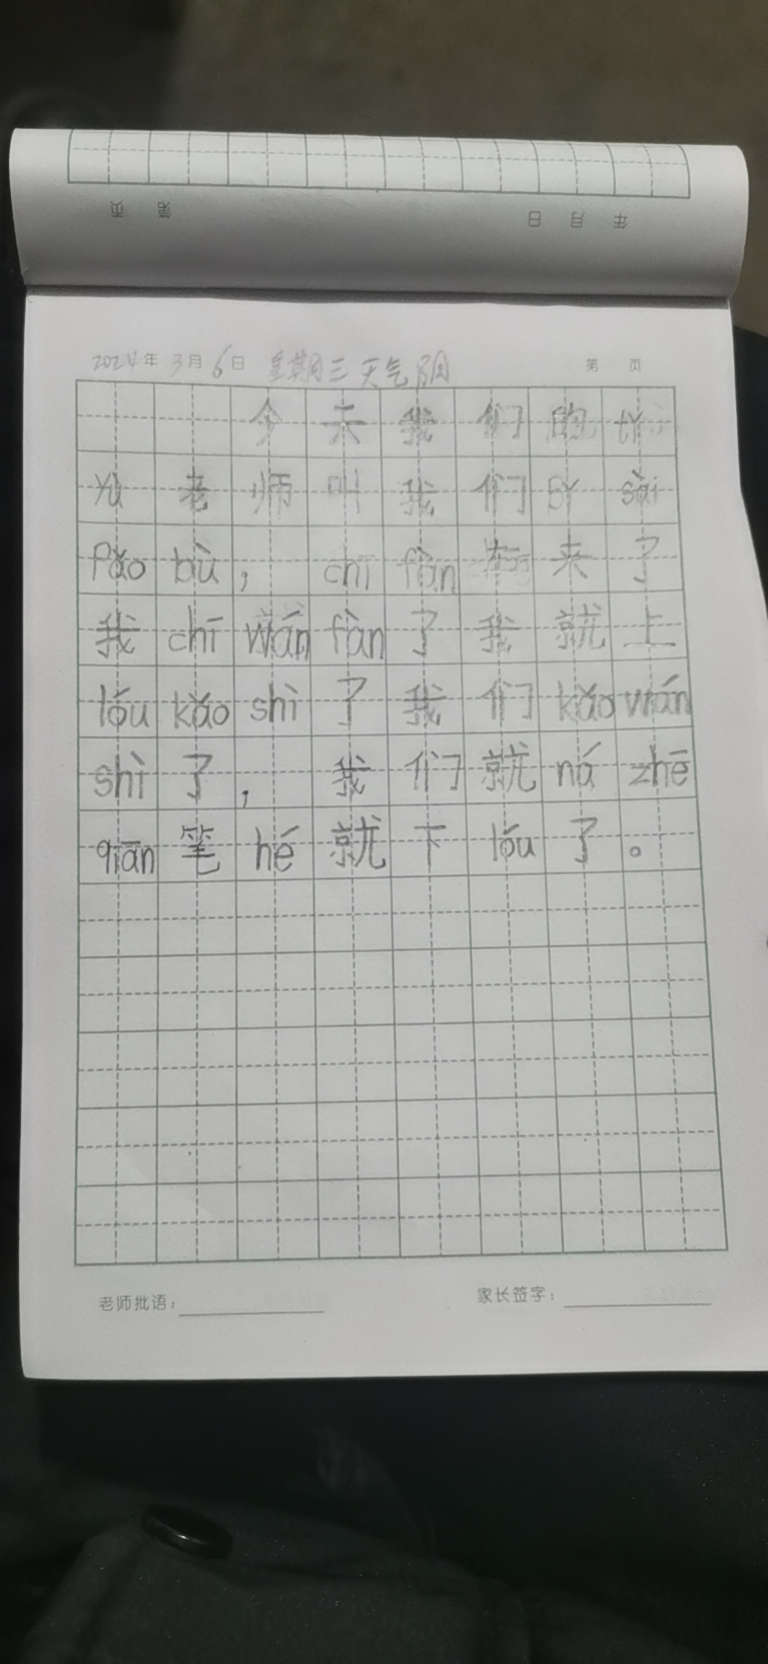 页 第 日 月 年
2024年 3月 6日 星期三 天气阴 第 页
今天我们的tǐ
yù老师叫我们bǐ sài
pǎo bù, chī fàn 来了
我chī wán fàn了我就上
lóu kǎo shì了我们kǎo wán
shì了,我们就ná zhē
qiān笔hé就下lóu了。
老师批语: 家长签字: